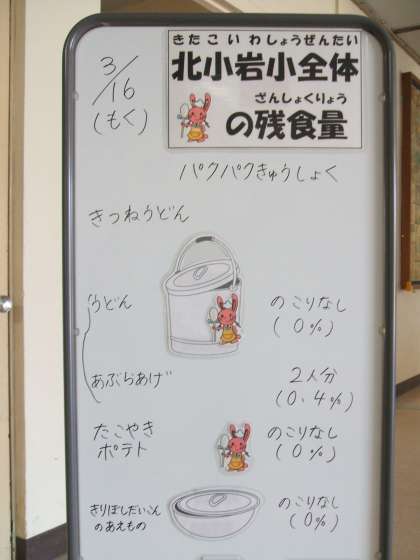 3/16
(もく)
きたこいわしょうぜんたい
北小岩小全体
ざんしょくりょう
の残食量
パクパクきゅうしょく
きつねうどん
うどん
のこりなし
(0%)
あぶらあげ
2人分
(0.4%)
たこやき
ポテト
のこりなし
(0%)
きりぼしだいこん
のあえもの
のこりなし
(0%)